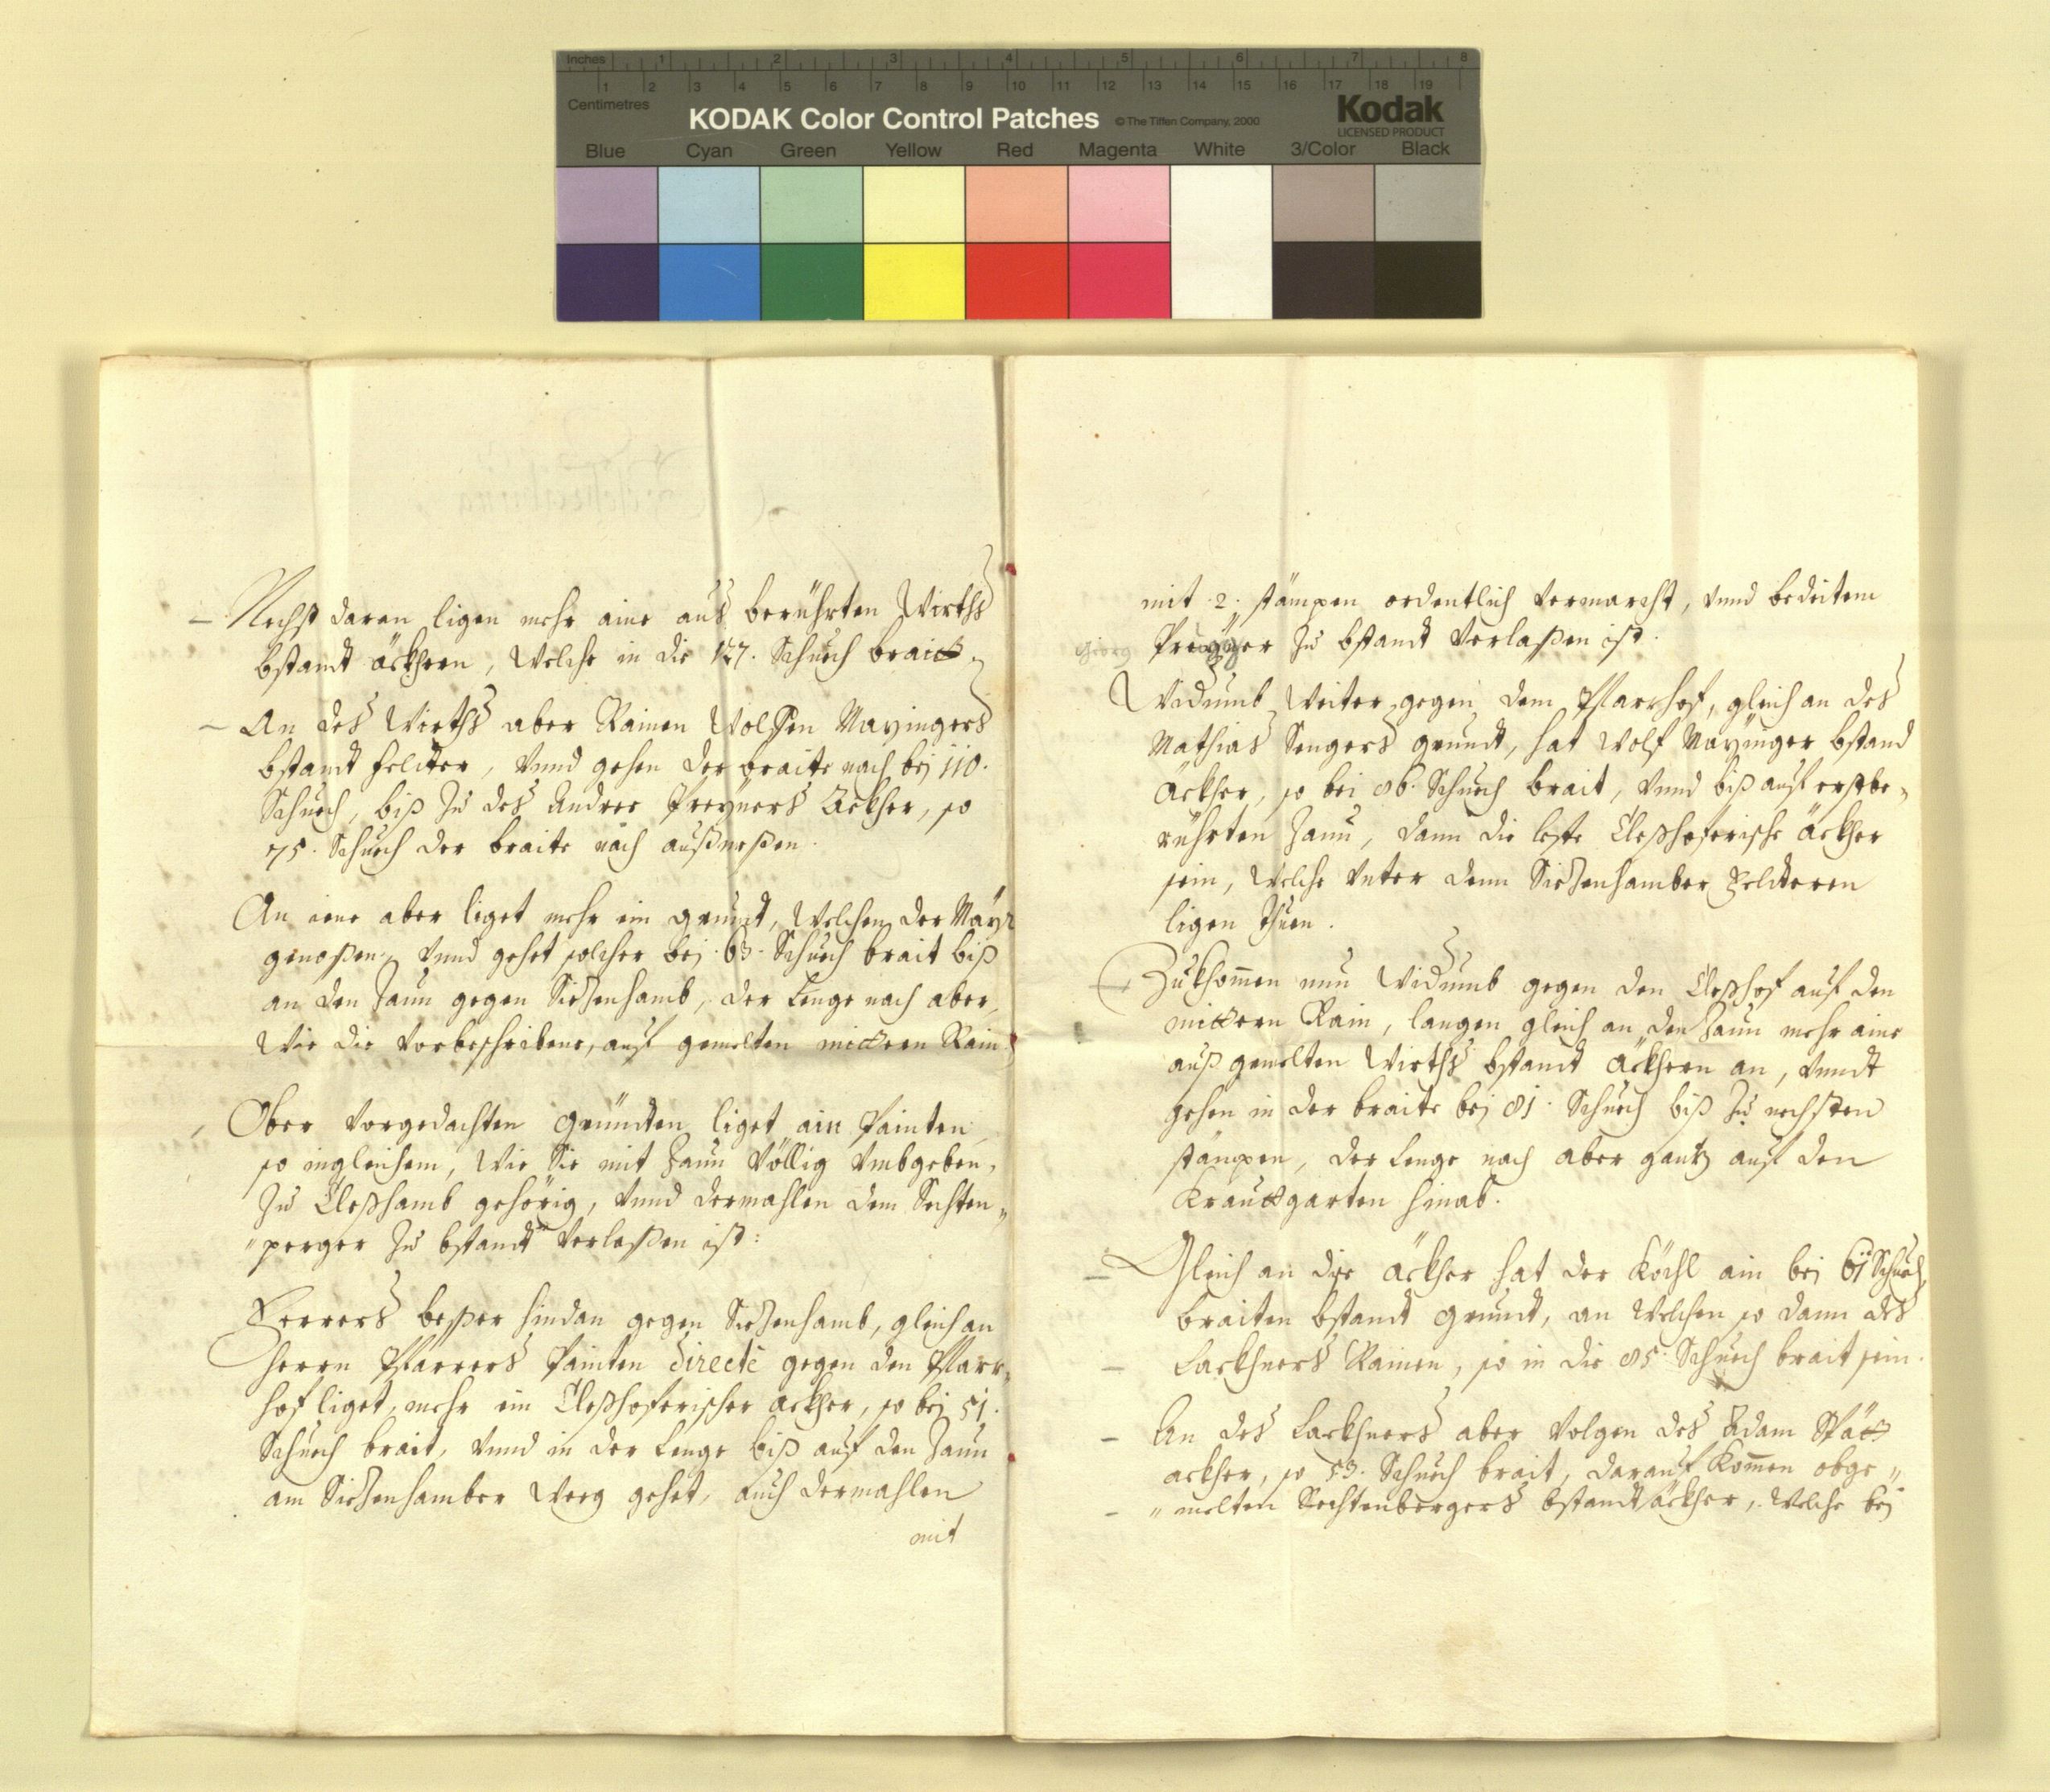 Inches 1 2 3 4 5 6 7 8
1 2 3 4 5 6 7 8 9 10 11 12 13 14 15 16 17 18 19
Centimetres
KODAK Color Control Patches © The Tiffen Company, 2000
Kodak
LICENSED PRODUCT
Blue Cyan Green Yellow Red Magenta White 3/Color Black
Nechst daran ligen mehr aine aus berührten Wirths
bstandt äckhern, Welche in die 127. Schuech braitt.
An des Wirths aber Rainen Wolfen Mayingers
bstandt feldter, vnnd gehen der braite nach bej 110.
Schuech, biß zu des Andree Preyners Äckher, so
75. Schuech der braite nach außmeßen.
An iene aber liget mehr ein grundt, Welchen der Mayr
genoßen, vnnd gehet solcher bej 63. Schuech brait biß
an den Zaun gegen Siezenhamb, der Lenge nach aber,
Wie die vorbeschribene, auf gemelten mittern Rain.
Ober vorgedachten gründten liget ain Painten,
so ingleichem, Wie Sie mit Zaun völlig vmbgeben,
zu Cleßhamb gehörig, vnnd dermahlen dem Sechten„
„perger zu bstandt verlaßen ist:
Ferrers beßer hindan gegen Siezenhamb, gleich an
Herrn Pfarrers Painten directè gegen den Pfarr„
hof liget, mehr ein Cleßhoferischer ackher, so bej 51.
Schuech brait, vnnd in der Lenge biß auf den Zaun
am Siezenhamber Weeg gehet, auch dermahlen
mit
mit 2. stämpen ordentlich vermarcht, vnnd bedeitem
Georg Preyner zu bstandt verlaßen ist.
Widumb Weiter gegen dem Pfarrhof, gleich an des
Mathias Sengers grundt, hat Wolf Mayinger bstand
Äckher, so bei 86. Schuech brait, vnnd biß auf erstbe„
rührten Zaun, dann die leste Cleßhoferische äckher
sein, Welche vnter denn Siezenhamber Feldteren
ligen thuen.
Zukhommen nun Widumb gegen den Cleßhof auf den
mittern Rain, langen gleich an den Zaun mehr aine
auß gemelten Wirths bstandt äckhern an, vnndt
gehen in der braite bej 81. Schuech biß zu nechsten
stämpen, der Lenge nach aber gantz auf den
Krauttgarten hinab.
Gleich an dise äckher hat der Köchl ain bei 61 Schuech
braiten bstandt grundt, an Welchen so dann des
Lackhners Rainen, so in die 85. Schuech brait sein.
An des Lackhners aber volgen des Adam Spätt
ackher, so 53. Schuech brait, darauf kommen obge„
„melten Sechtenbergers bstandt äckher, Welche bej